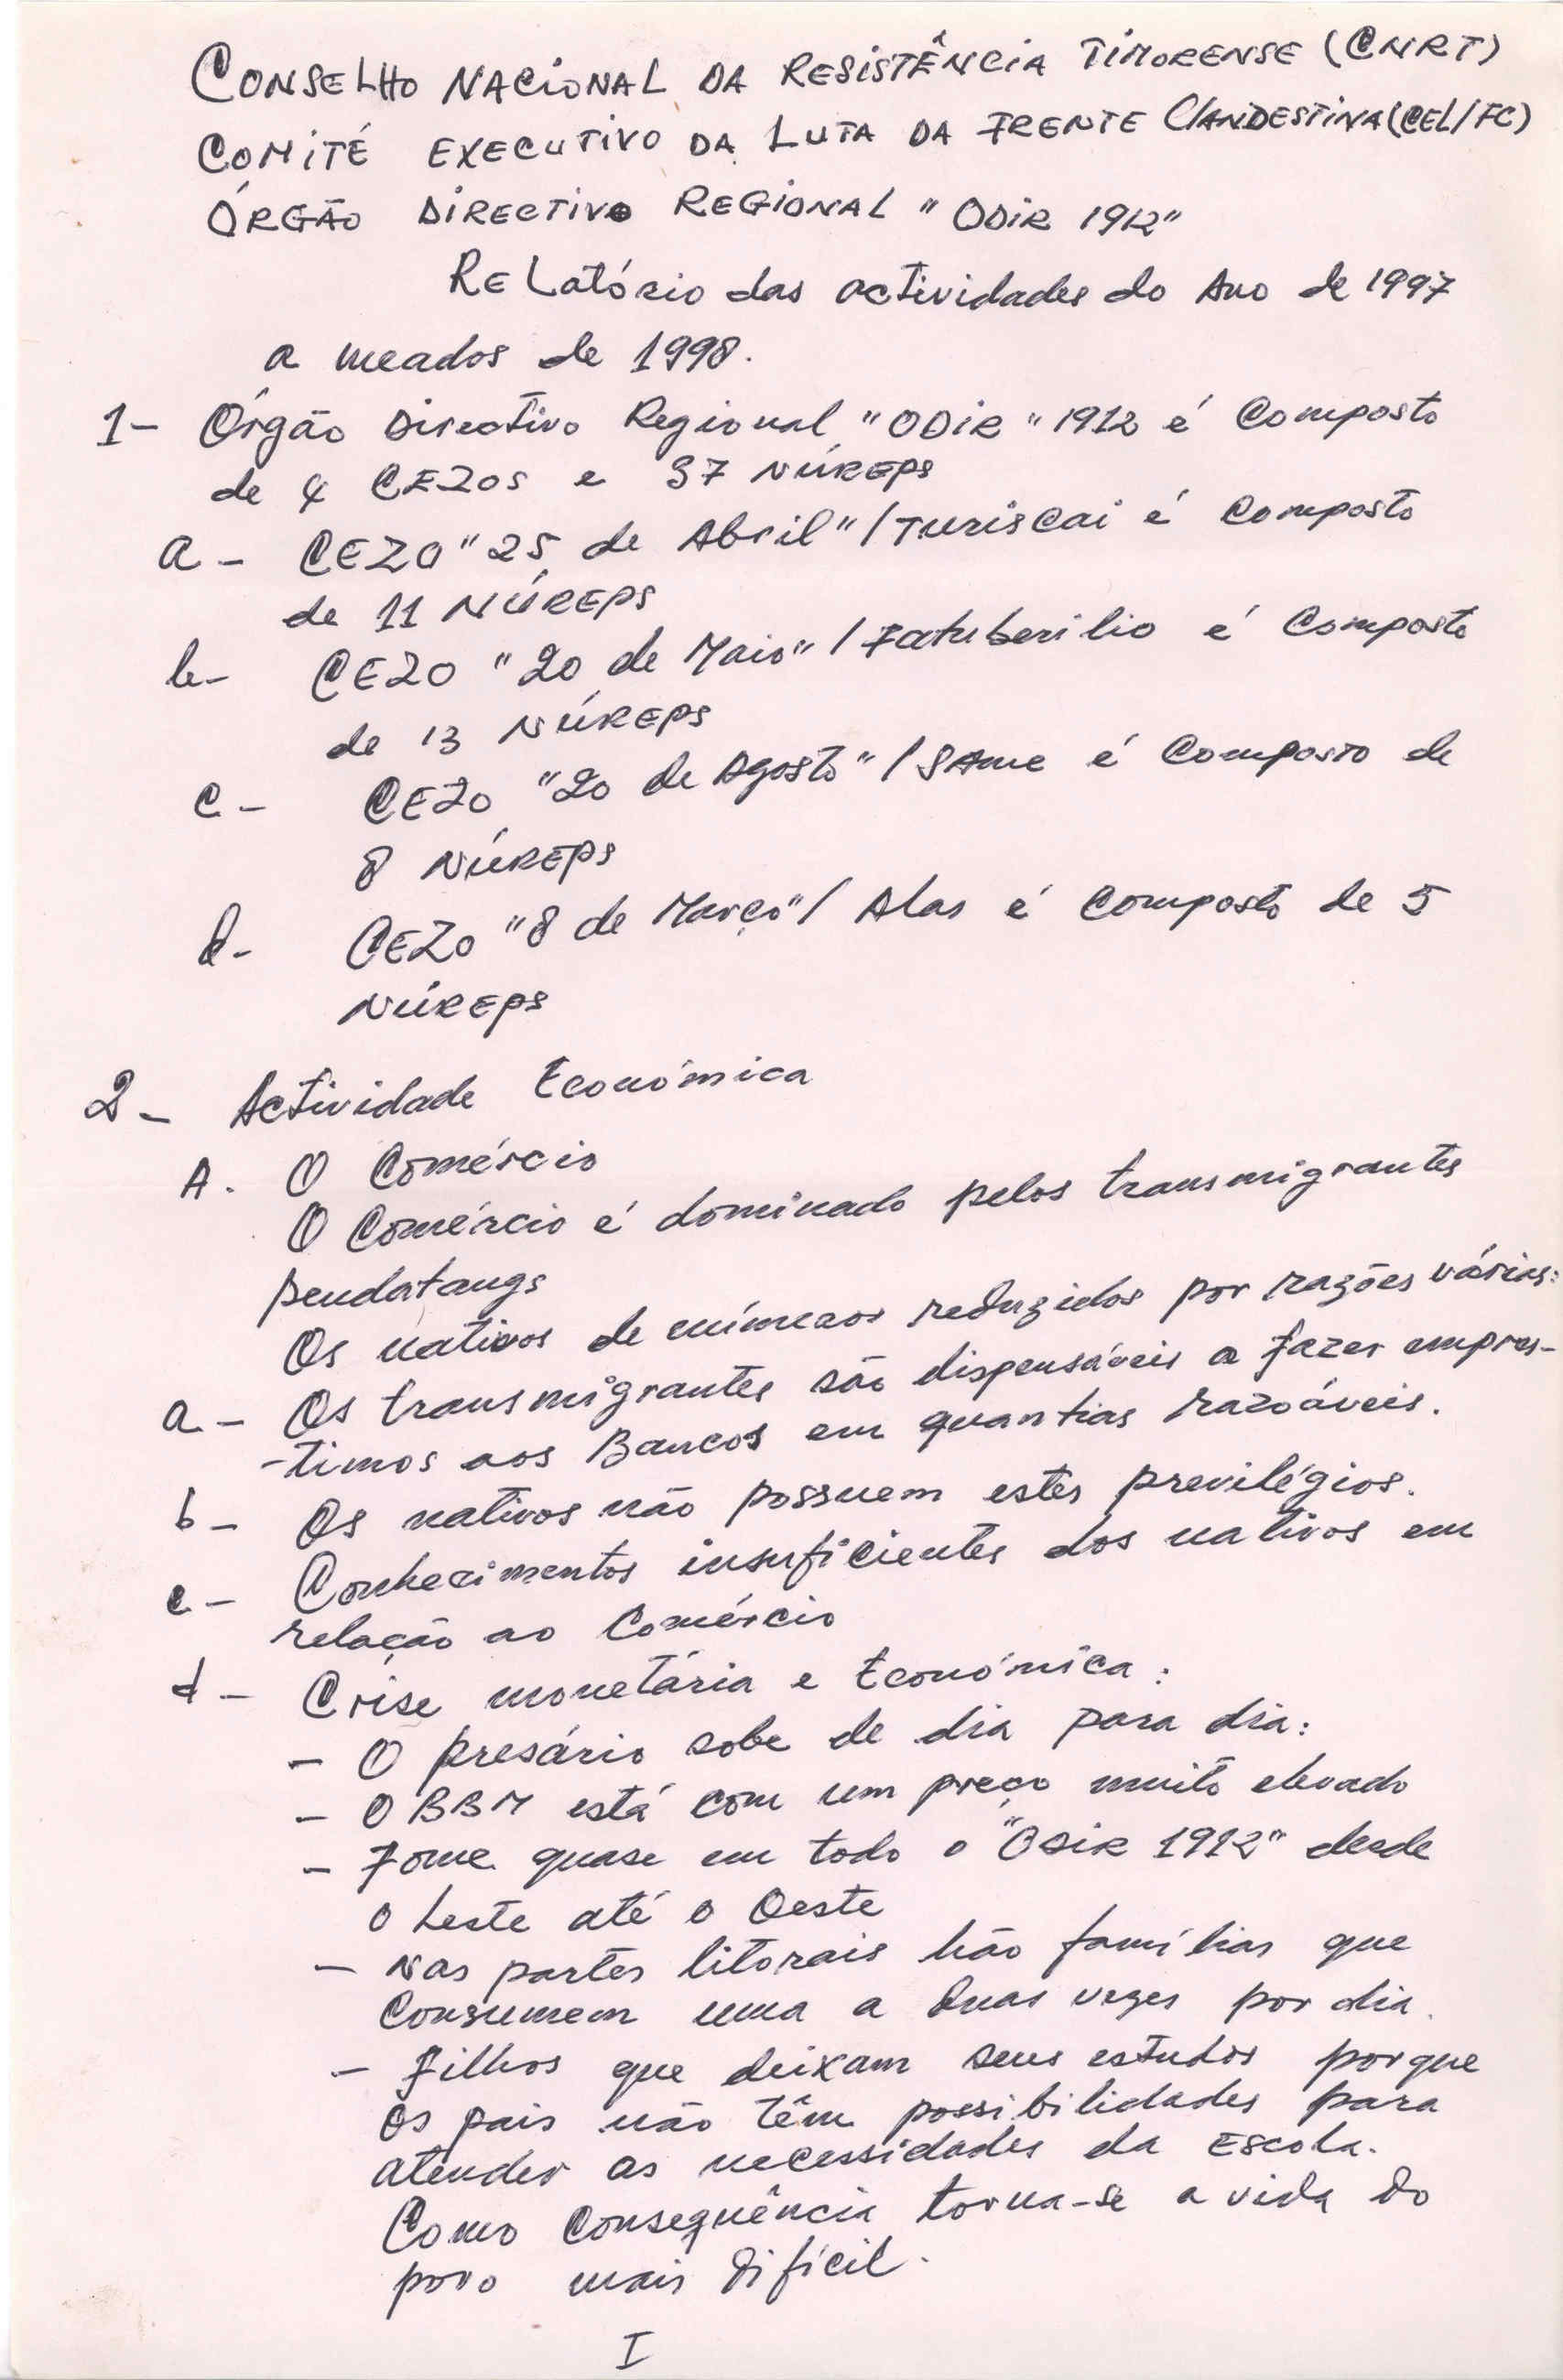 CONSELHO NACIONAL DA RESISTÊNCIA TIMORENSE (CNRT)
COMITÉ EXECUTIVO DA LUTA DA FRENTE CLANDESTINA (CEL/FC)
ÓRGÃO DIRECTIVO REGIONAL "ODIR 1912"
RELatório das actividades do Ano de 1997
a meados de 1998.
1- Órgão Directivo Regional "ODIR" 1912 é Composto
de 4 CEZOS e 37 NÚREPS
a- CEZO "25 de Abril" / Turiscai é Composto
de 11 NÚREPS
b- CEZO "20 de Maio" / Fatuberilio é Composto
de 13 NÚREPS
c- CEZO "20 de Agosto" / SAme é Composto de
8 NÚREPS
d- CEZO "8 de Março" / Alas é Composto de 5
NÚREPS
2- Actividade Económica
A. O Comércio
O Comércio é dominado pelos transmigrantes
pendatangs
Os nativos de números reduzidos por razões várias:
a- Os transmigrantes são dispensáveis a fazer empres-
-timos aos Bancos em quantias razoáveis.
b- Os nativos não possuem estes previlégios.
c- Conhecimentos insuficientes dos nativos em
relação ao Comércio
d- Crise monetária e Económica:
- O presário sobe de dia para dia:
- O BBM está com um preço muito elevado
- Fome quase em todo o "ODIR 1912" desde
o Leste até o Oeste
- Nas partes litorais hão famílias que
Consumem uma a duas vezes por dia.
- Filhos que deixam seus estudos porque
os pais não têm possibilidades para
atender as necessidades da Escola.
Como Consequência torna-se a vida do
povo mais difícil.
I